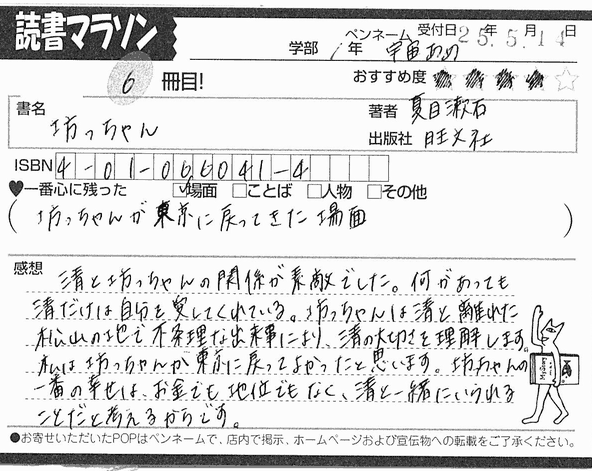 読書マラソン
学部 1年 ペンネーム 宇宙あめ 受付日25年5月14日
6冊目! おすすめ度 ★★★★☆
書名 坊っちゃん
著者 夏目漱石
出版社 旺文社
ISBN 4-01-066041-4
♥一番心に残った ☑場面 □ことば □人物 □その他
(坊っちゃんが東京に戻ってきた場面)
感想 清と坊っちゃんの関係が素敵でした。何があっても
清だけは自分を愛してくれている。坊っちゃんは清と離れた
松山の地で不条理な出来事により、清の大切さを理解します。
私は坊っちゃんが東京に戻ってよかったと思います。坊っちゃんの
一番の幸せは、お金でも地位でもなく、清と一緒にいられる
ことだと考えるからです。
●お寄せいただいたPOPはペンネームで、店内で掲示、ホームページおよび宣伝物への転載をご了承ください。